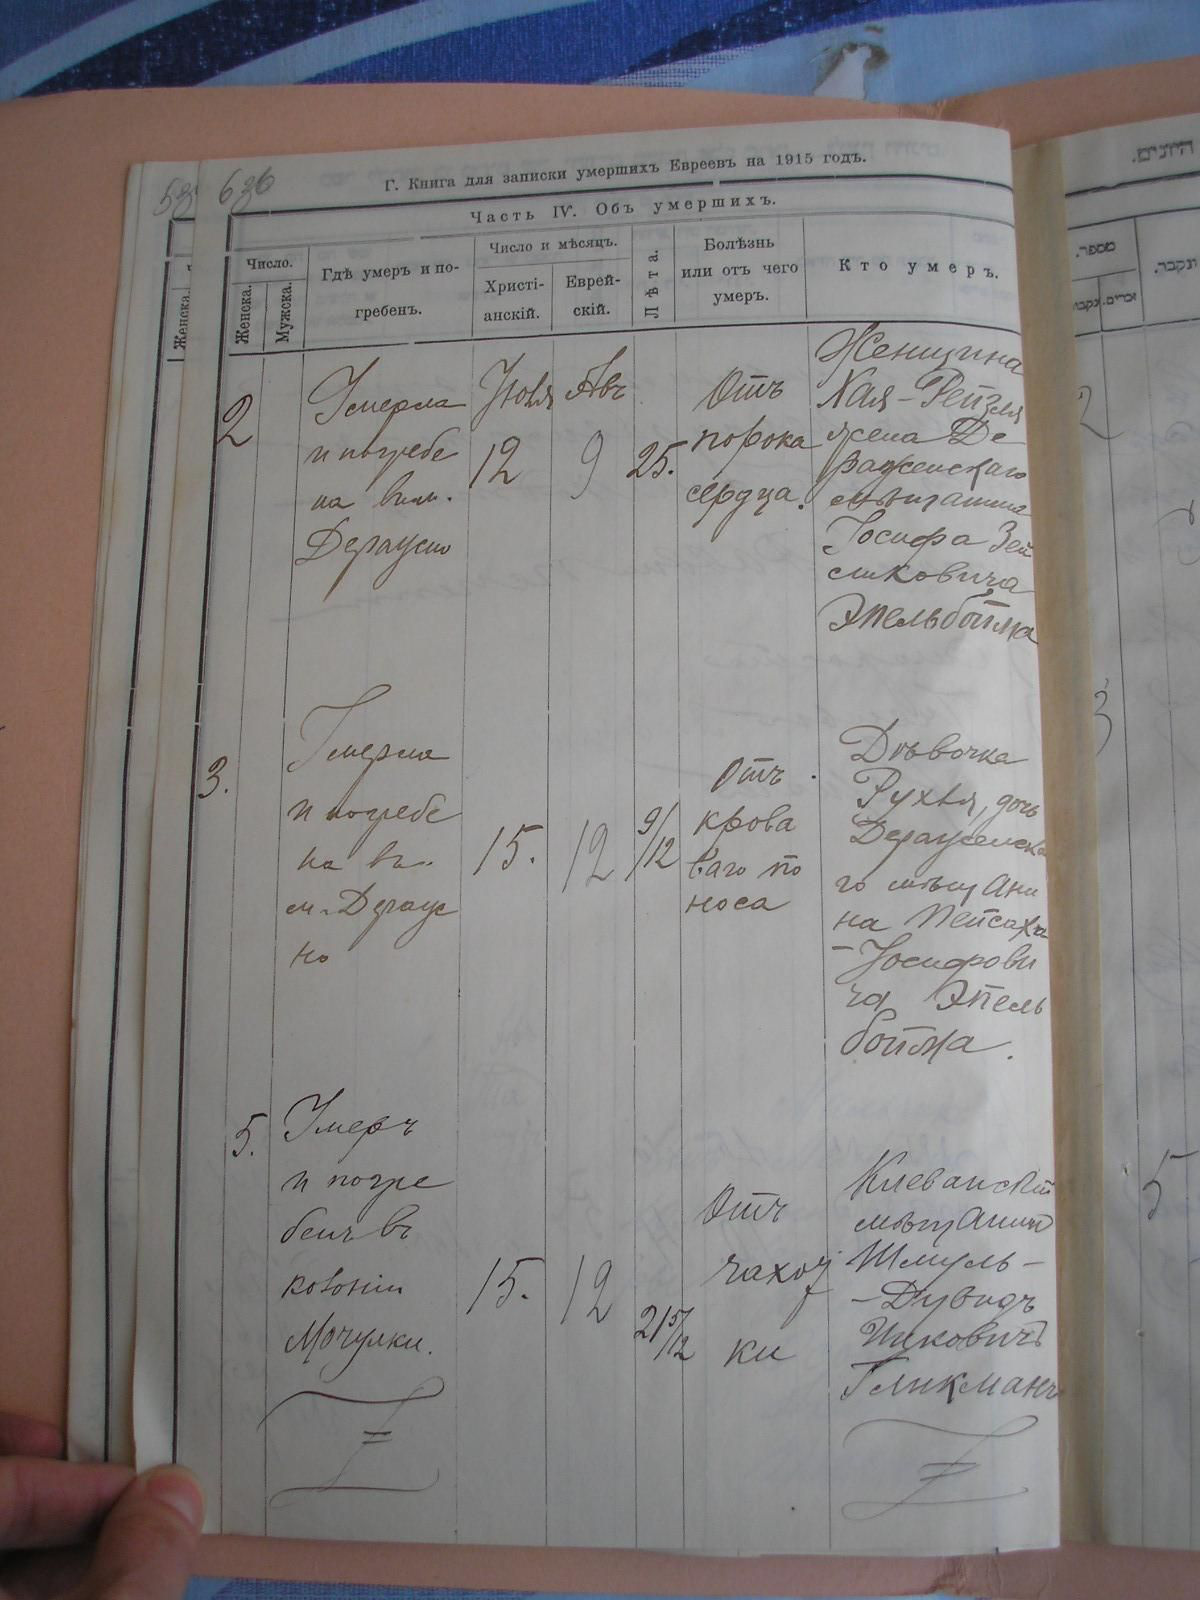 636
Г. Книга для записки умершихъ Евреевъ на 1915 годъ.
Часть IV. Объ умершихъ.
Число.
Женска.
Мужска.
Гдѣ умеръ и по-
гребенъ.
Число и мѣсяцъ.
Христі-
анскій.
Еврей-
скій.
Лѣта.
Болѣзнь
или отъ чего
умеръ.
Кто умеръ.
2
Умерла
и погребе
на въ м.
Деражно
Іюля
12
Авъ
9
25.
Отъ
порока
сердца.
Женщина
Хая-Рейзля
жена Де
раженскаго
мѣщанина
Іосифа Зей
ликовича
Эпельбойма
3.
Умерла
и погребе
на въ
м. Держаж
но
15.
12
9/12
Отъ
крова
ваго по
носа
Дѣвочка
Рухля, дочь
Деражнска
го мѣщани
на Пейсаха
-Іосифови
ча Эпель
бойма.
5.
Умеръ
и погре
бенъ въ
колоніи
Мочулки.
15.
12
21 5/12
Отъ
чахот
ки
Клеванскій
мѣщанинъ
Шмуль-
-Дувидъ
Ицковичъ
Гликманъ
Женска.
היונים.
מספר.
זכרים.
2
3
5